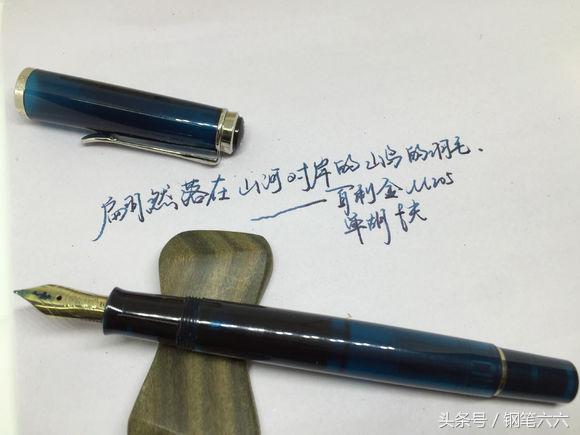 翩然落在山河对岸的山鸟的羽毛、
——百利金 M205
头条号 / 钢笔六六